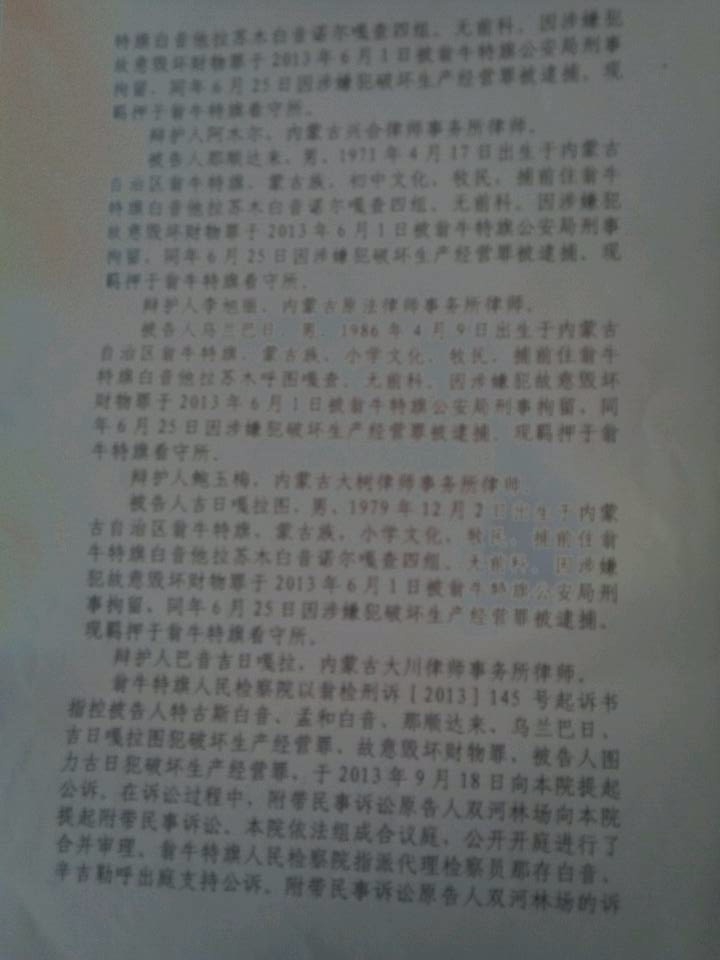 特旗白音他拉苏木白音诺尔嘎查四组。无前科。因涉嫌犯
故意毁坏财物罪于2013年6月1日被翁牛特旗公安局刑事
拘留，同年6月25日因涉嫌犯破坏生产经营罪被逮捕。现
羁押于翁牛特旗看守所。
辩护人阿木尔，内蒙古兴合律师事务所律师。
被告人那顺达来，男，1971年4月17日出生于内蒙古
自治区翁牛特旗，蒙古族，初中文化，牧民，捕前住翁牛
特旗白音他拉苏木白音诺尔嘎查四组。无前科。因涉嫌犯
故意毁坏财物罪于2013年6月1日被翁牛特旗公安局刑事
拘留，同年6月25日因涉嫌犯破坏生产经营罪被逮捕。现
羁押于翁牛特旗看守所。
辩护人李旭，内蒙古原法律师事务所律师。
被告人乌兰巴日，男，1986年4月9日出生于内蒙古
自治区翁牛特旗，蒙古族，小学文化，牧民，捕前住翁牛
特旗白音他拉苏木呼图嘎查。无前科。因涉嫌犯故意毁坏
财物罪于2013年6月1日被翁牛特旗公安局刑事拘留，同
年6月25日因涉嫌犯破坏生产经营罪被逮捕。现羁押于翁
牛特旗看守所。
辩护人鲍玉梅，内蒙古大树律师事务所律师。
被告人吉日嘎拉图，男，1979年12月2日出生于内蒙
古自治区翁牛特旗，蒙古族，小学文化，牧民，捕前住翁
牛特旗白音他拉苏木白音诺尔嘎查四组。无前科。因涉嫌
犯故意毁坏财物罪于2013年6月1日被翁牛特旗公安局刑
事拘留，同年6月25日因涉嫌犯破坏生产经营罪被逮捕。
现羁押于翁牛特旗看守所。
辩护人巴音吉日嘎拉，内蒙古大川律师事务所律师。
翁牛特旗人民检察院以翁检刑诉［2013］145号起诉书
指控被告人特古斯白音、孟和白音、那顺达来、乌兰巴日、
吉日嘎拉图犯破坏生产经营罪、故意毁坏财物罪，被告人图
力古日犯破坏生产经营罪，于2013年9月18日向本院提起
公诉。在诉讼过程中，附带民事诉讼原告人双河林场向本院
提起附带民事诉讼。本院依法组成合议庭，公开开庭进行了
合并审理。翁牛特旗人民检察院指派代理检察员那存白音、
辛吉勒呼出庭支持公诉。附带民事诉讼原告人双河林场的诉